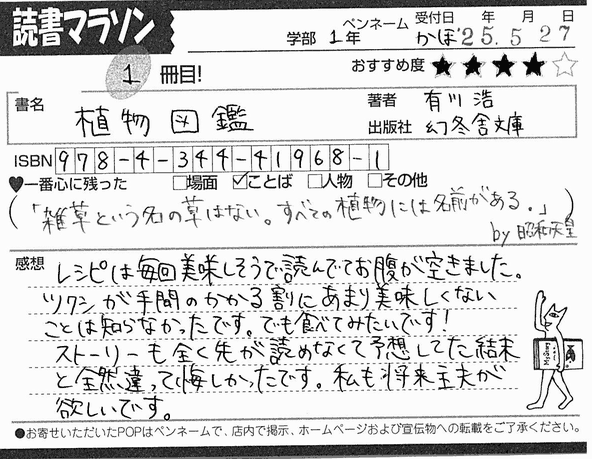 読書マラソン
学部 1年
ペンネーム かほ
受付日 '25年 5月 27日
1 冊目!
おすすめ度 ★★★★☆
書名 植物図鑑
著者 有川浩
出版社 幻冬舎文庫
ISBN 978-4-344-41968-1
♥一番心に残った □場面 ☑ことば □人物 □その他
(「雑草という名の草はない。すべての植物には名前がある。」
by 昭和天皇)
感想
レシピは毎回美味しそうで読んでてお腹が空きました。
ツクシが手間のかかる割にあまり美味しくない
ことは知らなかったです。でも食べてみたいです!
ストーリーも全く先が読めなくて予想してた結末
と全然違って悔しかったです。私も将来主夫が
欲しいです。
●お寄せいただいたPOPはペンネームで、店内で掲示、ホームページおよび宣伝物への転載をご了承ください。